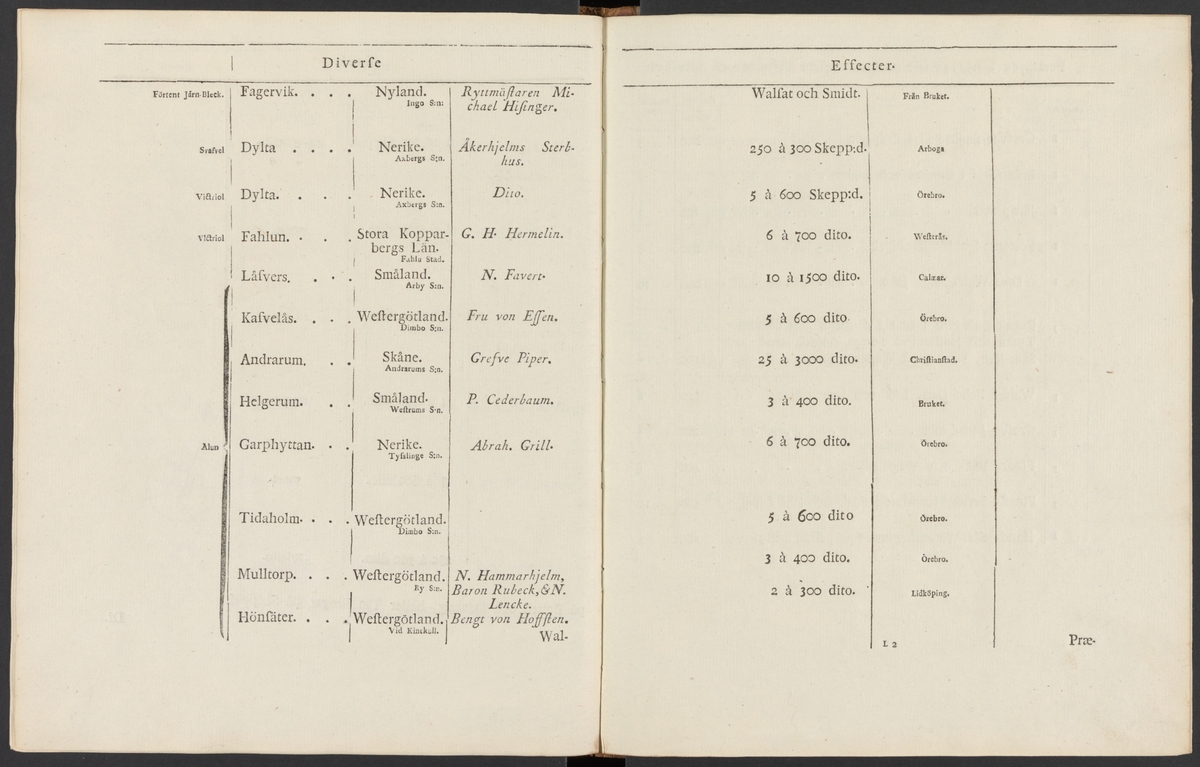 Diverſe
Förtent Järn-Bleck. Fagervik. . . . Nyland. Ryttmäſtaren Mi-
Ingo S:n: chael Hiſinger.
Svafvel Dylta . . . . Nerike. Åkerhjelms Sterb-
Axbergs S:n. hus.
Victriol Dylta. . . . Nerike. Dito.
Axbergs S:n.
Victriol Fahlun. . . . Stora Koppar- G. H. Hermelin.
bergs Län.
Fahlu Stad.
Låfvers. . . . Småland. N. Favert.
Arby S:n.
Kafvelås. . . . Weſtergötland. Fru von Eſſen.
Dimbo S:n.
Andrarum. . . Skåne. Grefve Piper.
Andrarums S:n.
Helgerum. . . Småland. P. Cederbaum.
Weſtrums S:n.
Alun Garphyttan. . . Nerike. Abrah. Grill.
Tyſslinge S:n.
Tidaholm. . . . Weſtergötland.
Dimbo S:n.
Mulltorp. . . . Weſtergötland. N. Hammarhjelm,
By S:n. Baron Rubeck, & N.
Lencke.
Hönſäter. . . . Weſtergötland. Bengt von Hoffſten.
Vid Kinekull.
Wal-
Effecter.
Walſat och Smidt. Från Bruket.
250 à 300 Skepp:d. Arboga
5 à 600 Skepp:d. Örebro.
6 à 700 dito. Weſterås.
10 à 1500 dito. Calmar.
5 à 600 dito. Örebro.
25 à 3000 dito. Chriſtianſtad.
3 à 400 dito. Bruket.
6 à 700 dito. Örebro.
5 à 600 dito Örebro.
3 à 400 dito. Örebro.
2 à 300 dito. Lidköping.
L 2 Præ-